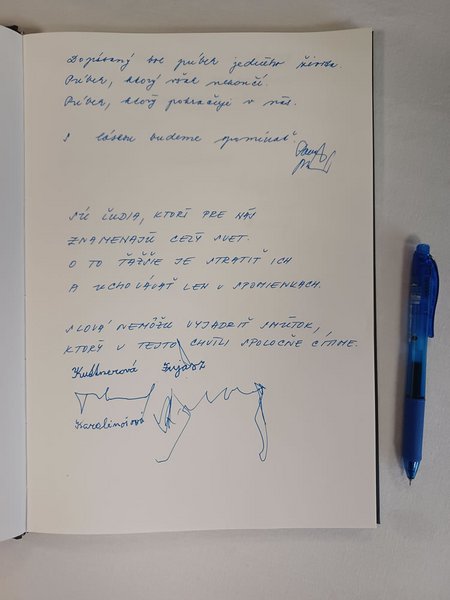 Dopísaný bol príbeh jedného života.
Príbeh, ktorý však nekončí.
Príbeh, ktorý pokračuje v nás.
S láskou budeme spomínať.
SÚ ĽUDIA, KTORÍ PRE NÁS
ZNAMENAJÚ CELÝ SVET.
O TO ŤAŽŠIE JE STRATIŤ ICH
A UCHOVÁVAŤ LEN V SPOMIENKACH.
SLOVÁ NEMÔŽU VYJADRIŤ SMÚTOK,
KTORÝ V TEJTO CHVÍLI SPOLOČNE CÍTIME.
Kuttnerová